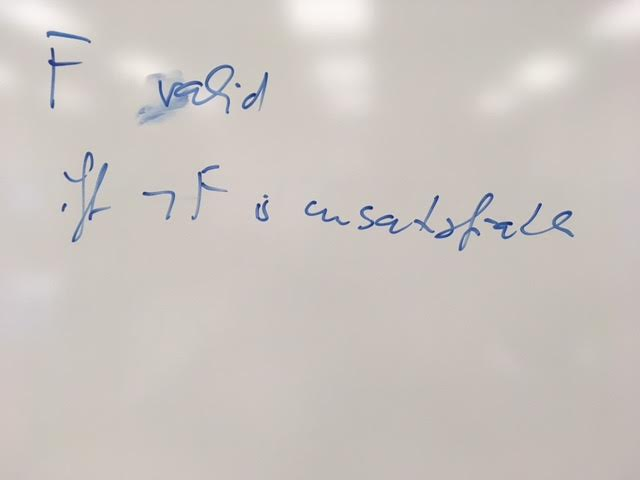 F valid
iff ¬F is unsatisfiable